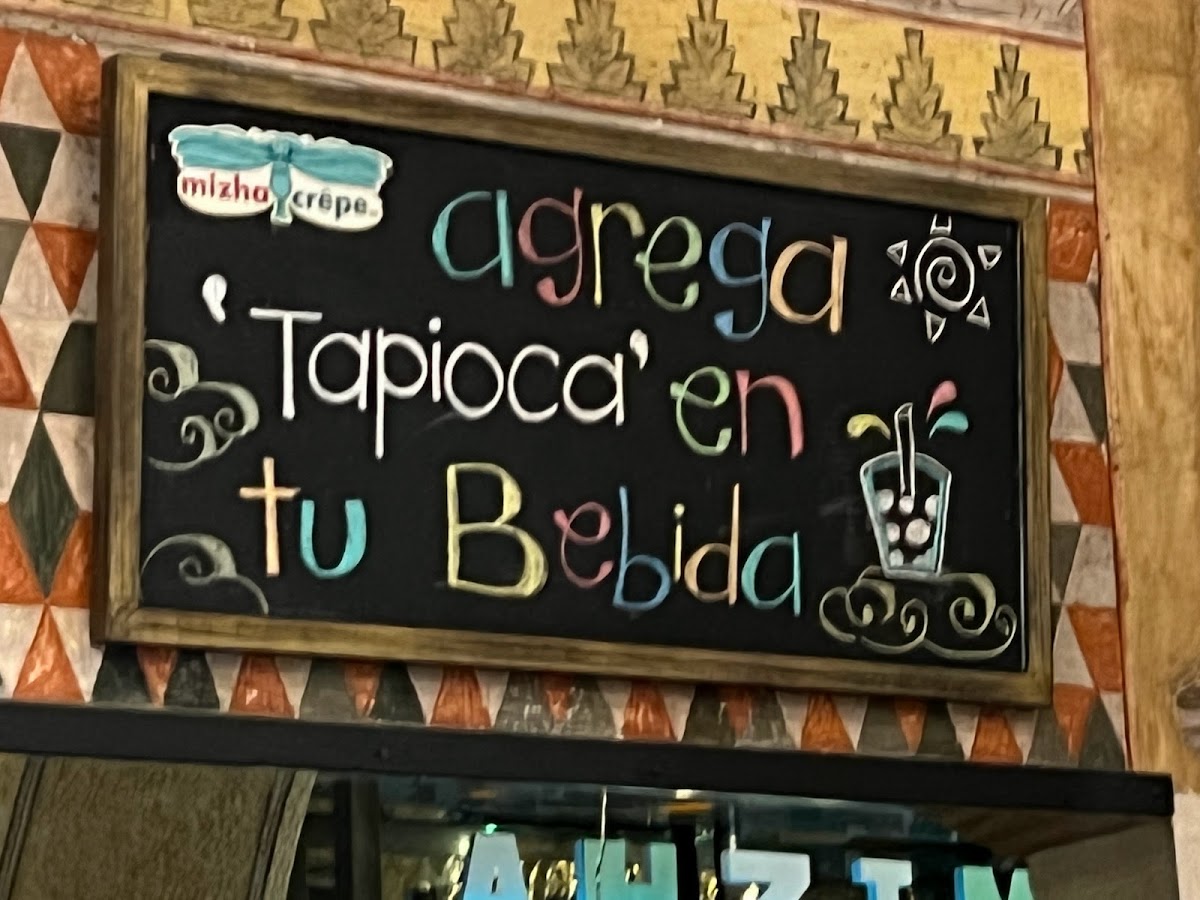 mizha crêpe
agrega
'Tapioca' en
tu Bebida
AHZIM